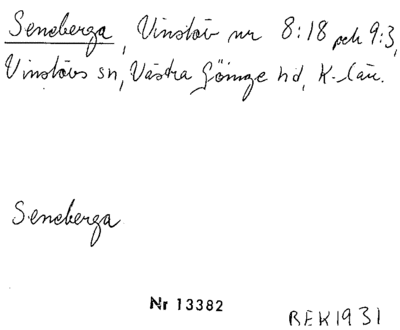 Seneberga, Vinslöv nr 8:18 och 9:3,
Vinslövs sn, Västra Göinge hd, K-län.
Seneberga
Nr 13382
BEK1931